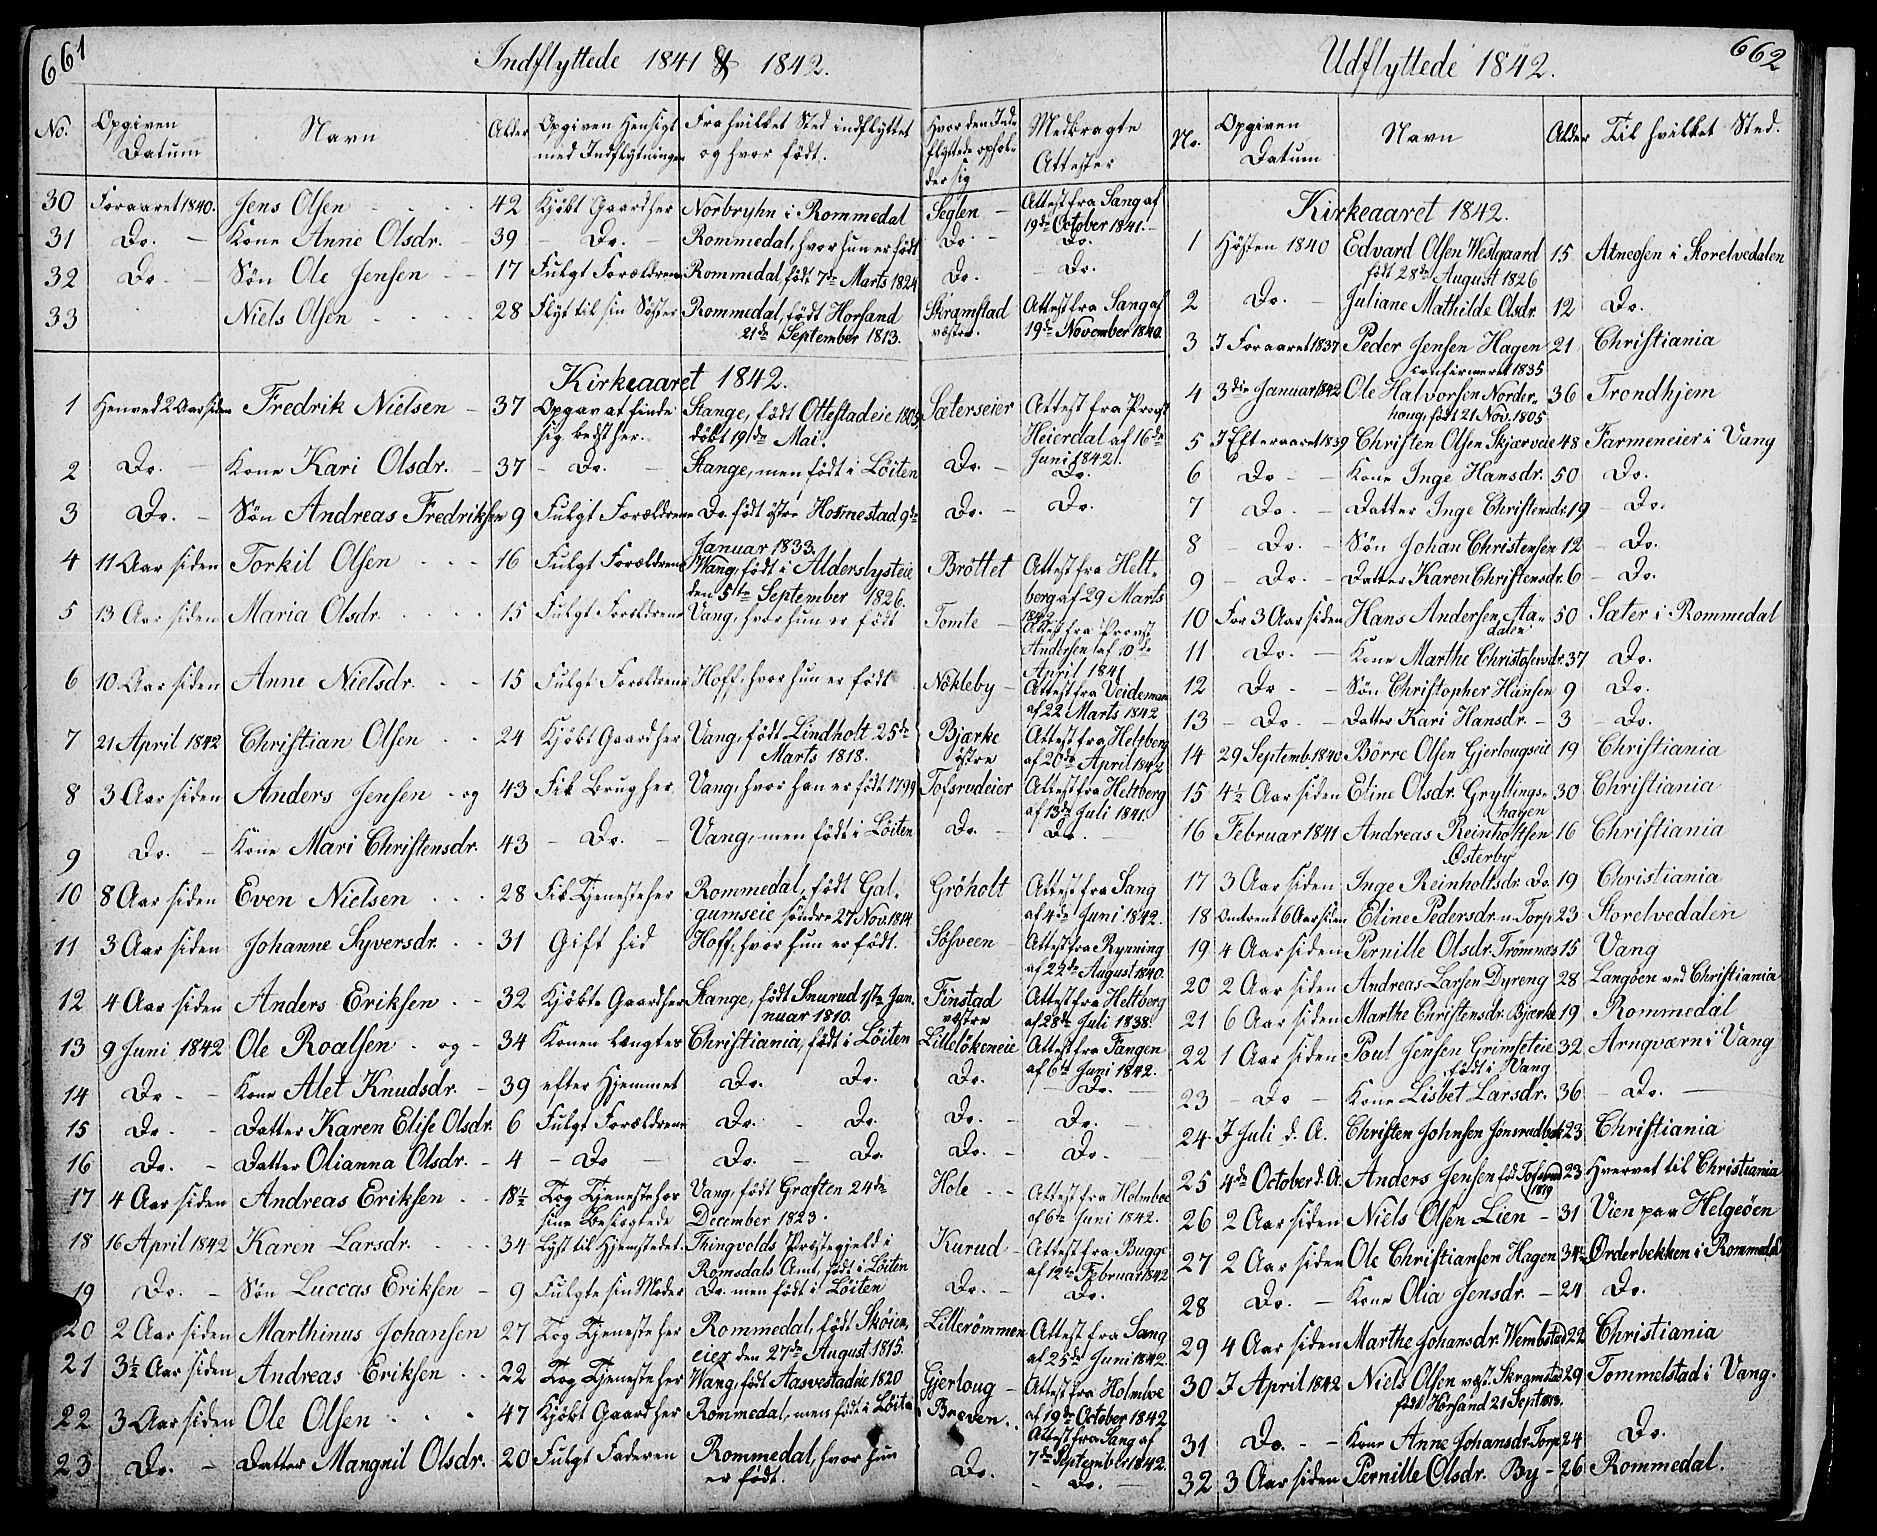 661
Indflyttede 1841 & 1842.
No. Opgiven Datum Navn Alder Opgiven Hensigt med Indflytningen Fra hvilket Sted indflyttet og hvor født. Hvor den Indflyttede opholder sig Medbragte Attester
30 Foraaret 1840. Jens Olsen 42 Kjøbt Gaard her Norbryhn i Rommedal Seglen Attest fra Sang af 19de October 1841.
31 Do. Kone Anne Olsdr. 39 Do. Rommedal, hvor hun er født Do. Do.
32 Do Søn Ole Jensen 17 Fulgt Forældrene Rommedal, født 7de Marts 1824 Do. Do.
33 Niels Olsen 28 Flyt til sin Søster Rommedal, født Horsand 21de September 1813. Skramstad væstre. Attest fra Sang af 19de November 1840.
Kirkeaaret 1842.
1 Henved 2 Aar siden Fredrik Nielsen 37 Opgav at finde sig bedst her. Stange, født Ottestadeie 1805 døbt 19de Mai. Sæterseier Attest fra Provst Heierdal af 16de Juni 1842.
2 Do. Kone Kari Olsdr. 37 Do. Stange, men født i Løiten Do. Do.
3 Do. Søn Andreas Fredriksen 9 Fulgt Forældrene Do. født østre Hommestad 9de Januar 1833. Do. Do.
4 11 Aar siden Torkil Olsen 16 Fulgt Forældrene Wang, født i Alderslysteie den 5te September 1826. Brøttet Attest fra Heltberg af 29 Marts 1842
5 13 Aar siden Maria Olsdr. 15 Fulgt Forældrene Vang, hvor hun er født Tomte Attest fra Provst Andersen af 10de April 1841
6 10 Aar siden Anne Nielsdr. 15 Fulgt Forældrene Hoff, hvor hun er født Nøkleby Attest fra Veideman af 22 Marts 1842
7 21 April 1842 Christian Olsen 24 Kjøbt Gaard her Vang, født Lindholt 25de Marts 1818. Bjærke østre Attest fra Heltberg af 20de April 1842
8 3 Aar siden Anders Jensen og 43 Fik Brug her Vang, hvor han er født 1799 Tofsrudeier Attest fra Heltberg af 13de Juli 1841.
9 Do. Kone Mari Christensdr. 43 Do. Vang, men født i Løiten Do. Do.
10 8 Aar siden Even Nielsen 28 Fik Tjeneste her Rommedal, født Galgumseie søndre 27 Nov. 1814 Grøholt Attest fra Sang af 4de Juni 1842.
11 3 Aar siden Johanne Syversdr. 31 Gift hid Hoff, hvor hun er født. Søsveen Attest fra Rynning af 22de August 1840.
12 4 Aar siden Anders Eriksen 32 Kjøbte Gaard her Stange, født Snurud 1ste Januar 1810. Finstad væstre Attest fra Heltberg af 28de Juli 1838.
13 9 Juni 1842 Ole Roalsen og 34 Konen længtes Christiania, født i Løiten Lilleløkeneie Attest fra Fangen af 6te Juni 1842.
14 Do Kone Alet Knudsdr. 39 efter Hjemmet Do. Do. Do. Do.
15 Do. Datter Karen Elise Olsdr. 6 Fulgt Forældrene Do. Do. Do. Do.
16 Do. Datter Olianna Olsdr. 4 Do Do. Do. Do. Do.
17 4 Aar siden Andreas Eriksen 18½ Tog Tjeneste hos sine Beslægtede Vang, født Graften 24de December 1823. Hole Attest fra Holmboe af 6te Juni 1842.
18 16 April 1842 Karen Larsdr. 34 Lyst til Hjemstedet. Thingvolds Præstegjeld i Romsdals Amt, født i Løiten Kurud Attest fra Bugge af 12te Februar 1842
19 Do. Søn Luccas Eriksen 9 Fulgte sin Moder Do. men født i Løiten Do. Do.
20 2 Aar siden Marthinus Johansen 27 Tog Tjeneste her Rommedal, født Skøieneier den 27de August 1815. Lillerømmen Attest fra Sang af 25de Juni 1842.
21 3½ Aar siden Andreas Eriksen 22 Tog Tjeneste her Wang, født Aasvestadeie 1820 Gjerloug Attest fra Holmboe af 19de October 1842
22 3 Aar siden Ole Olsen 47 Kjøbt Gaard her Rommedal, men født i Løiten Breven. Attest fra Sang af 7de September 1842.
23 Do. Datter Mangnil Olsdr. 20 Fulgt Faderen Rommedal, hvor hun er født. Do. Do.
662
Udflyttede 1842.
No. Opgiven Datum Navn Alder Til hvilket Sted.
Kirkeaaret 1842.
1 Høsten 1840 Edvard Olsen Westgaard født 28de August 1826 15 Atneosen i Storelvedalen
2 Do. Juliane Mathilde Olsdr. 12 Do.
3 I Foraaret 1837 Peder Jensen Hagen confirmeret 1835 21 Christiania
4 3die Januar 1842 Ole Halvorsen Norderhoug, født 21 Nov. 1805 36 Trondhjem
5 I Efteraaret 1839 Christen Olsen Skjærveie 48 Farmeneier i Vang
6 Do Kone Inge Hansdr. 50 Do.
7 Do. Datter Inge Christensdr. 19 Do.
8 Do. Søn Johan Christensen 12 Do.
9 Do. Datter Karen Christensdr. 6 Do.
10 For 3 Aar siden Hans Andersen Aadalen 50 Sæter i Rommedal
11 Do. Kone Marthe Christofersdr. 37 Do.
12 Do Søn Christopher Hansen 9 Do.
13 Do. Datter Kari Hansdr. 3 Do.
14 29 Septemb. 1840 Børre Olsen Gjerlougseie 19 Christiania
15 4½ Aar siden Eline Olsdr. Gryllingshagen 30 Christiania
16 Februar 1841 Andreas Reinholtsen Østerby 16 Christiania
17 3 Aar siden Inge Reinholtsdr. Do. 19 Christiania
18 Omtrent 6 Aar siden Eline Pedersdr. n. Torp 23 Storelvedalen
19 4 Aar siden Pernille Olsdr. Trømnæs 15 Vang
20 2 Aar siden Andreas Larsen Dyreng 28 Langøen ved Christiania
21 6 Aar siden Marthe Christensdr. Bjærke 19 Rommedal
22 1 Aar siden Poul Jensen Grimseteie født i Vang 32 Arnqværn i Vang
23 Do Kone Lisbet Larsdr. 36 Do.
24 I Juli d. A. Christen Johnsen Jonsrudbak 23 Christiania
25 4de October d. A. Anders Jensen fød Tofsrud 1819 23 Hvervet til Christiania
26 2 Aar siden Niels Olsen Lien 31 Vien paa Helgeøen
27 2 Aar siden Ole Christiansen Hagen 34½ Ørderbekken i Rommedal
28 Do. Kone Olia Jensdr. 24 Do.
29 4 Aar siden Marthe Johansdr. Wembstad 22 Christiania
30 I April 1842 Niels Olsen væst. Skramstad født Horsand 21 Sept. 1813. 29 Tommelstad i Vang.
31 Do. Kone Anne Johansdr. Torp 24 Do.
32 3 Aar siden Pernille Olsdr. By 26 Rommedal.